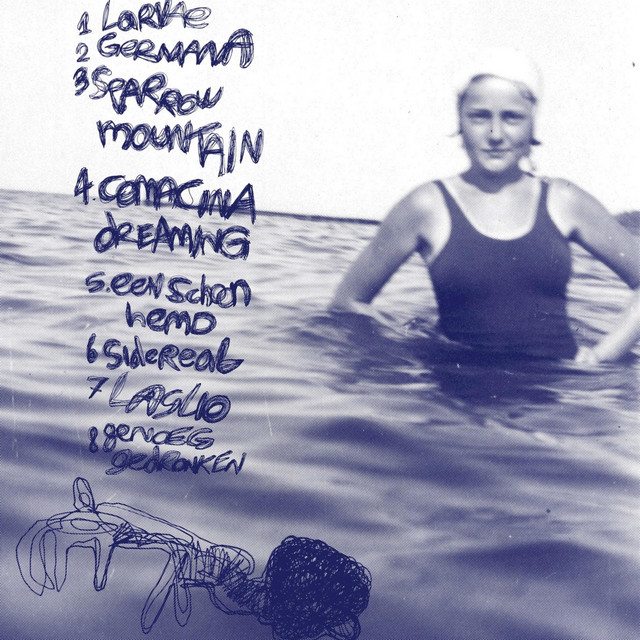 1 Larvae
2 Germana
3 Sparrow
mountain
4. comacina
dreaming
5. een schoon
hemd
6 Sidereal
7 Laglio
8 genoeg
gedronken